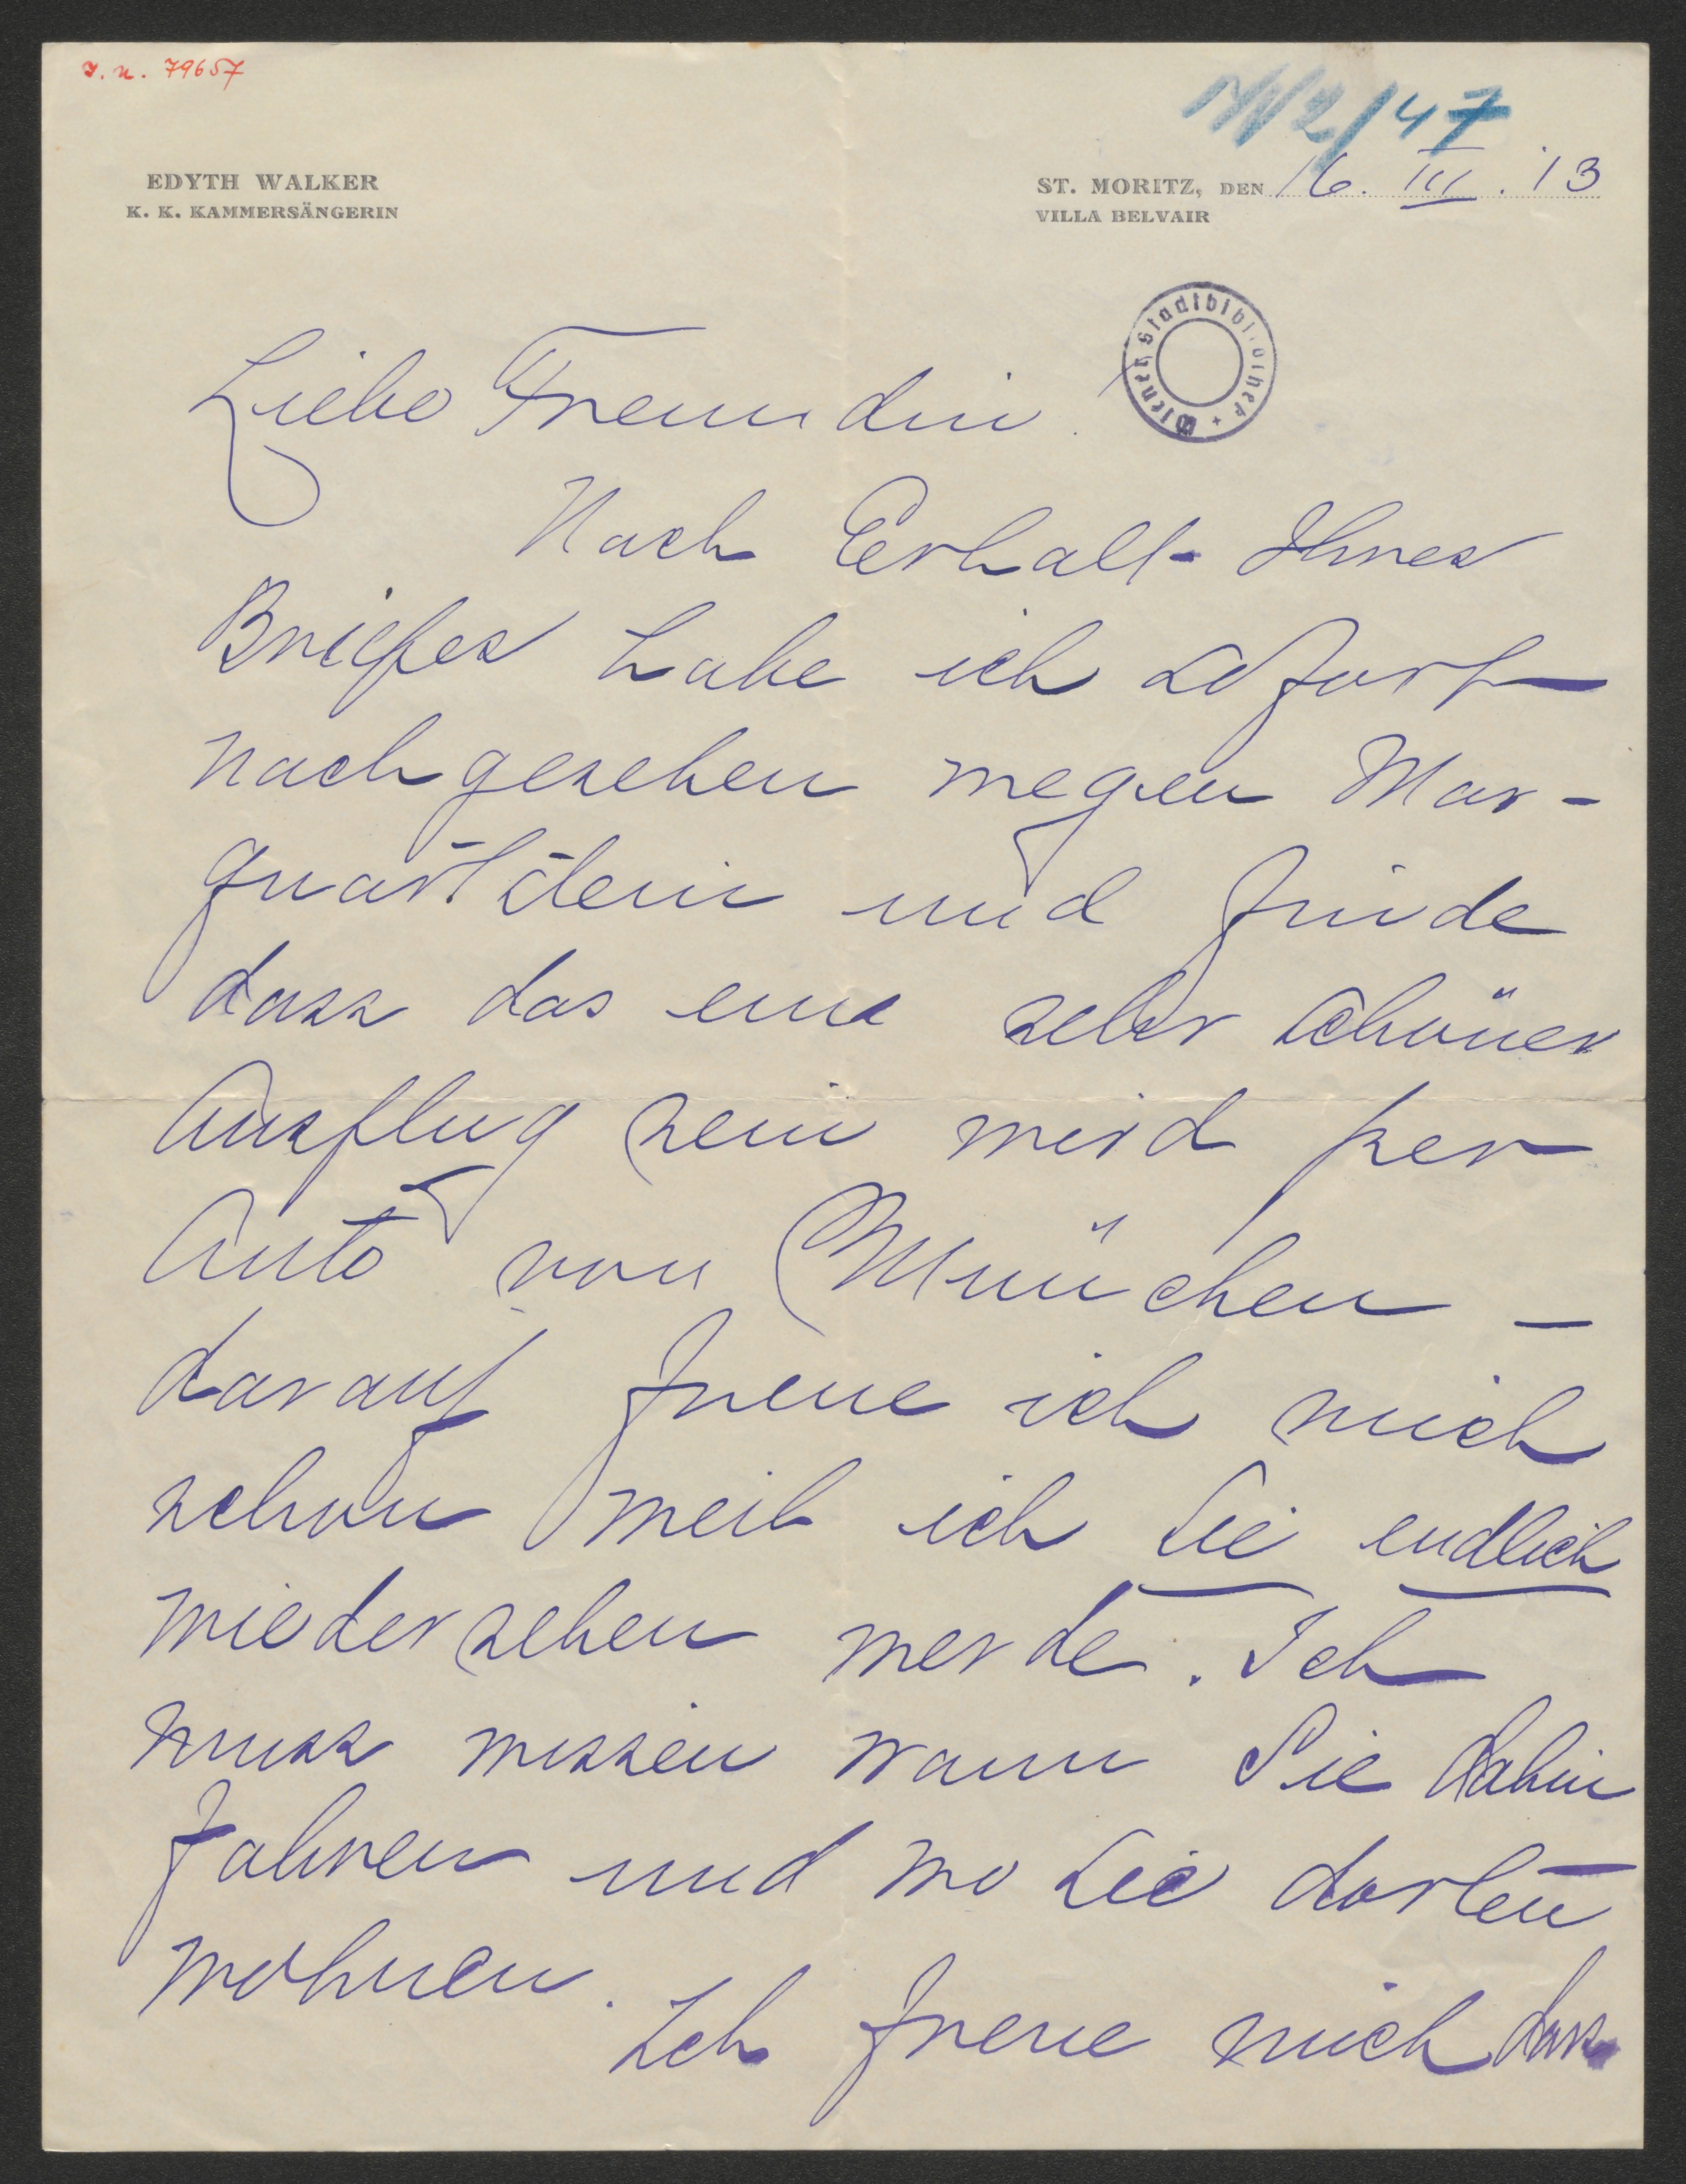 I. N. 79657
EDYTH WALKER
K. K. KAMMERSÄNGERIN
2/47
ST. MORITZ, DEN 16. III. 13
VILLA BELVAIR
Wiener Stadtbibliothek
Liebe Freundin!
Nach Erhalt Ihres
Briefes habe ich sofort
nachgesehen wegen Mar-
quartstein und finde
dass das eine sehr schöner
Ausflug sein wird per
Auto von München –
darauf freue ich mich
schon weil ich Sie endlich
wiedersehen werde. Ich
muss wissen wann Sie dahin
fahren und wo Sie dorten
wohnen. Ich freue mich dass